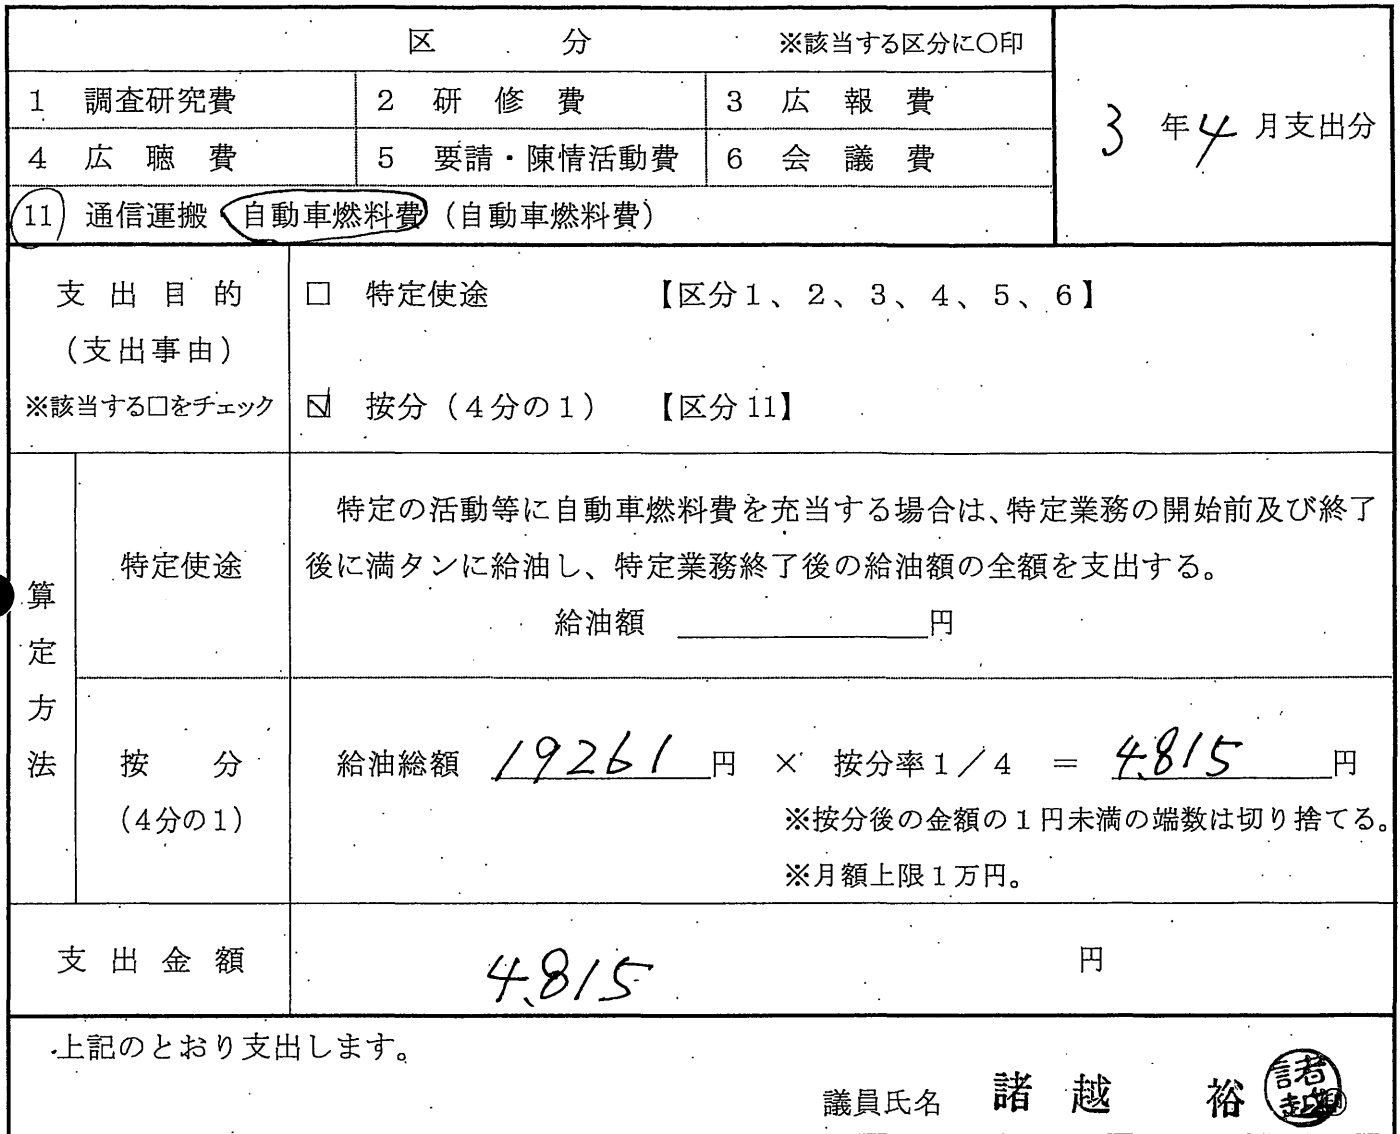 区 分 ※該当する区分に〇印
3年4月支出分
1 調査研究費 2 研修費 3 広報費
4 広聴費 5 要請・陳情活動費 6 会議費
11 通信運搬 自動車燃料費（自動車燃料費）
支出目的
（支出事由）
※該当する□をチェック
□ 特定使途 【区分1、2、3、4、5、6】
☑ 按分（4分の1） 【区分11】
算定方法
特定使途
特定の活動等に自動車燃料費を充当する場合は、特定業務の開始前及び終了
後に満タンに給油し、特定業務終了後の給油額の全額を支出する。
給油額 円
按分
（4分の1）
給油総額 19261円 × 按分率1／4 ＝ 4,815円
※按分後の金額の1円未満の端数は切り捨てる。
※月額上限1万円。
支出金額 4,815 円
上記のとおり支出します。
議員氏名 諸越 裕 諸越